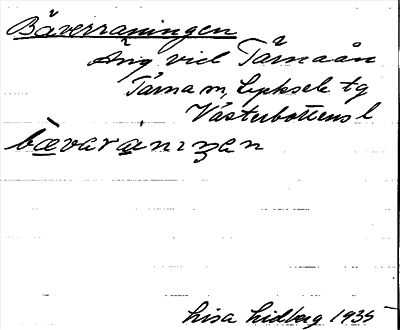 Bäverraningen
Äng vid Tärnaån
Tärna sn, Lycksele tg
Västerbottens l
bævarànıŋan
Lisa Lidberg 1935